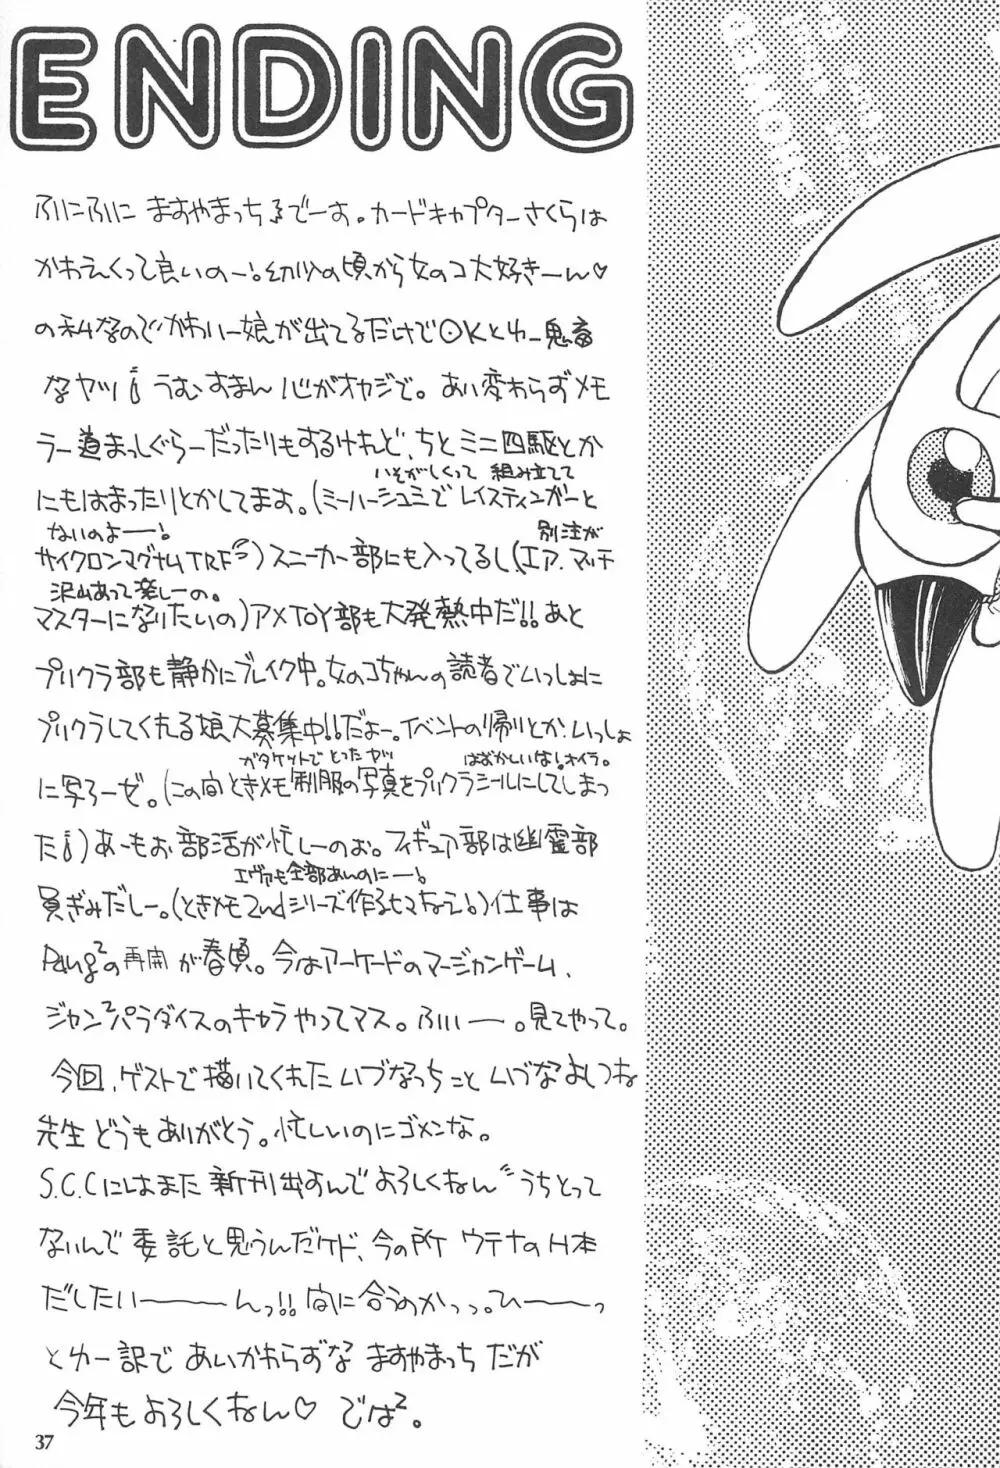 ENDING
ふにふにに ますやまっちるでーす。カードキャプターさくらは
かわえくって良いのー!幼少の頃から女のコ大好きーん♡
の私なのでかわいー娘が出てるだけでOKとゆー鬼畜
なヤツ! うむすまん 心がオヤジで。あい変わらずメモ
ラー道まっしぐらーだったりもするけれど、ちとミニ四駆とか
いそがしくって 組み立てて
にもはまったりとかしてます。(ミーハーシュミで レイスティンガーと
ないのよーー! 別注が
サイクロンマグナムTRF)スニーカー部にも入ってるし(エア.マッチ
沢山あって楽しーの。
マスターになりたいの)アメTOY部も大発熱中だ!!あと
プリクラ部も静かにブレイク中。女のコちゃんの読者でいっしょに
プリクラしてくれる娘大募集中!!だよー。イベントの帰りとか、いっしょ
ガタケットでとったヤツ はずかしいな!オイラ。
に写ろーぜ。(この間ときメモ制服の写真をプリクラシールにしてしまっ
た!)あーもお部活が忙しーのお。フィギュア部は幽霊部
エヴァも全部あんのにー!
員ぎみだしー。(ときメモ2ndシリーズ作るヒマもねえ!)仕事は
Pang²の再開が春頃。今はアーケードのマージャンゲーム、
ジャン²パラダイスのキャラやってマス。ふぃーー。見てやって。
今回、ゲストで描いてくれた いづなっちこと いづなよしつね
先生どうもありがとう。忙しいのにゴメンな。
S.C.Cにはまた新刊出すんでよろしくねん" うちとって
ないんで委託と思うんだケド、今の所 ウテナのH本
だしたいーーーんっ!! 間に合うのかっっ。ひーーーっ
とゆー訳で あいかわらずな ますやまっち だが
今年もよろしくねん♡ では²。
37